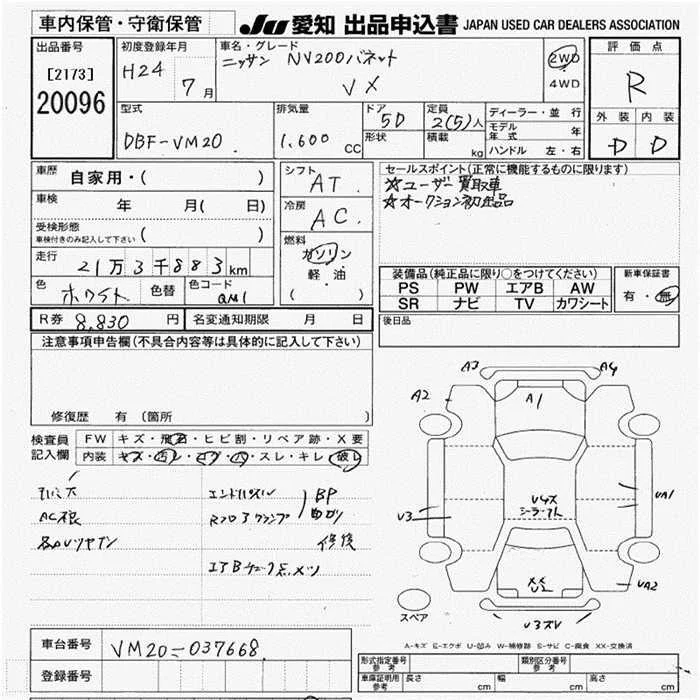 車内保管・守衛保管
JU 愛知 出品申込書 JAPAN USED CAR DEALERS ASSOCIATION
出品番号
[2173]
20096
初度登録年月
H24
7月
車名・グレード
ニッサン NV200バネット
VX
2WD
4WD
評価点
R
外装 内装
D D
型式
DBF-VM20
排気量
1,600 CC
ドア
5D
形状
定員
2(5)人
積載
kg
ディーラー・並行
モデル年式 年
ハンドル 左・右
車歴 自家用・( )
車検 年 月( 日)
受検形態
車検付きのみ記入して下さい ( )
走行 21万3千883km
色 ホワイト 色替 色コード QM1
シフト
AT
冷房
AC
燃料
ガソリン
軽・油
( )
セールスポイント(正常に機能するものに限ります)
☆ユーザー買取車
☆オークション初出品
装備品(純正品に限り○をつけてください)
PS PW エアB AW
SR ナビ TV カワシート
新車保証書
有・無
R券 8,830 円 名変通知期限 月 日
後日品
注意事項申告欄(不具合内容等は具体的に記入して下さい)
修復歴 有 (箇所
検査員記入欄
FW キズ・飛石・ヒビ割・リペア跡・X要
内装 キズ・汚レ・コゲ・穴・スレ・キレ・破レ
BP
曲がり
修復
A3 A4
A2 A1
V3 VA1
VA2
XX
スペア
A-キズ E-エクボ U-凹み W-補修跡 S-サビ C-腐食 XX-交換済
車台番号 VM20-037668
登録番号
形式指定番号 参考
類別区分番号 参考
車庫証明用 参考 長さ cm 幅 cm 高さ cm